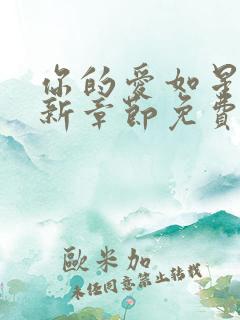 你的愛如星
新章節免費
歐米加
未任同意禁止轉載